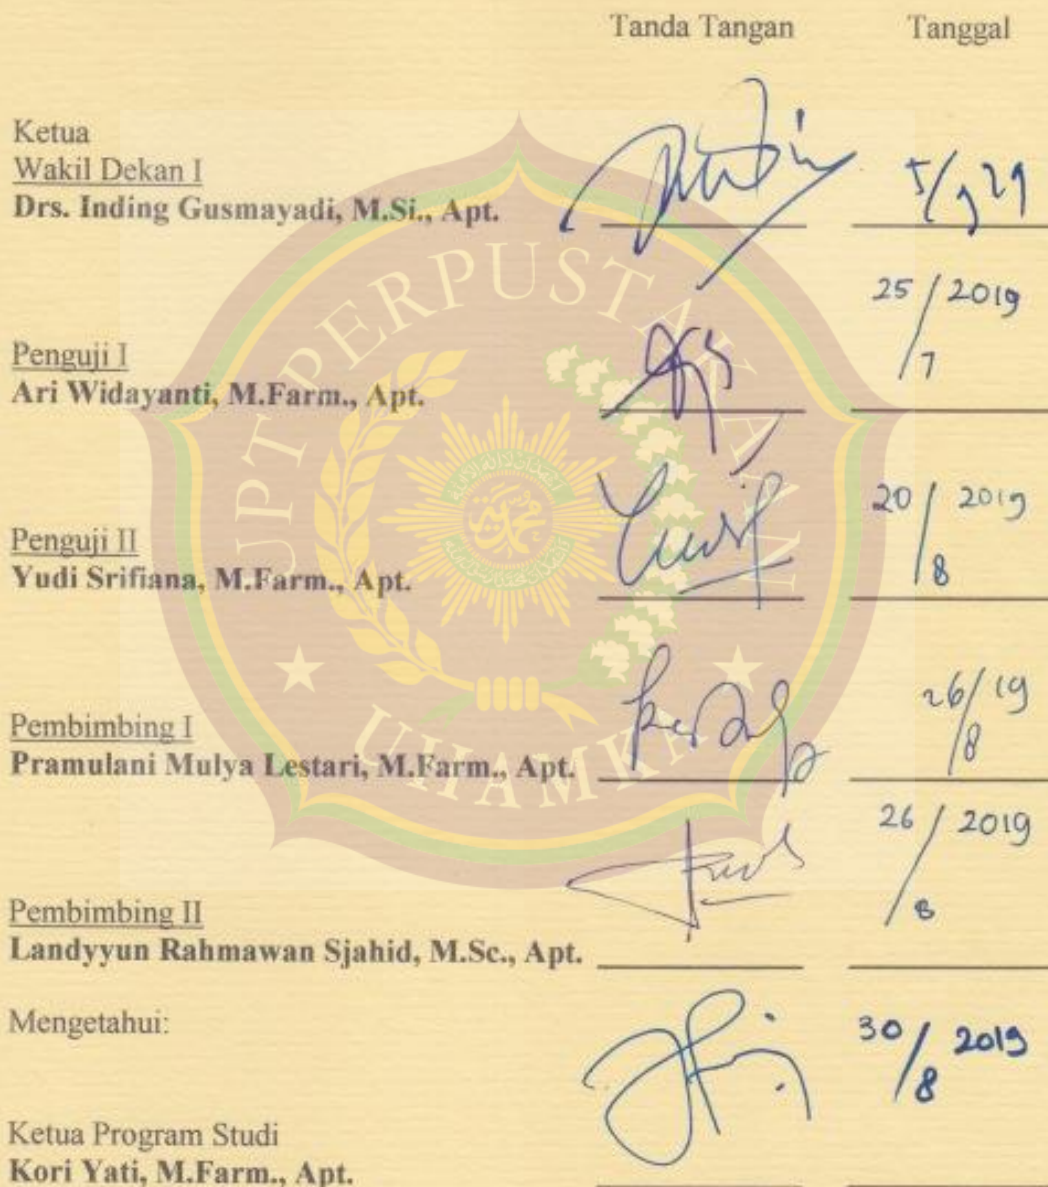 Tanda Tangan Tanggal
Ketua
Wakil Dekan I
Drs. Inding Gusmayadi, M.Si., Apt.
5/9 19
25/7 2019
Penguji I
Ari Widayanti, M.Farm., Apt.
20/8 2019
Penguji II
Yudi Srifiana, M.Farm., Apt.
26/8 19
Pembimbing I
Pramulani Mulya Lestari, M.Farm., Apt.
26/8 2019
Pembimbing II
Landyyun Rahmawan Sjahid, M.Sc., Apt.
Mengetahui:
30/8 2019
Ketua Program Studi
Kori Yati, M.Farm., Apt.
UPT PERPUSTAKAAN
UHAMKA